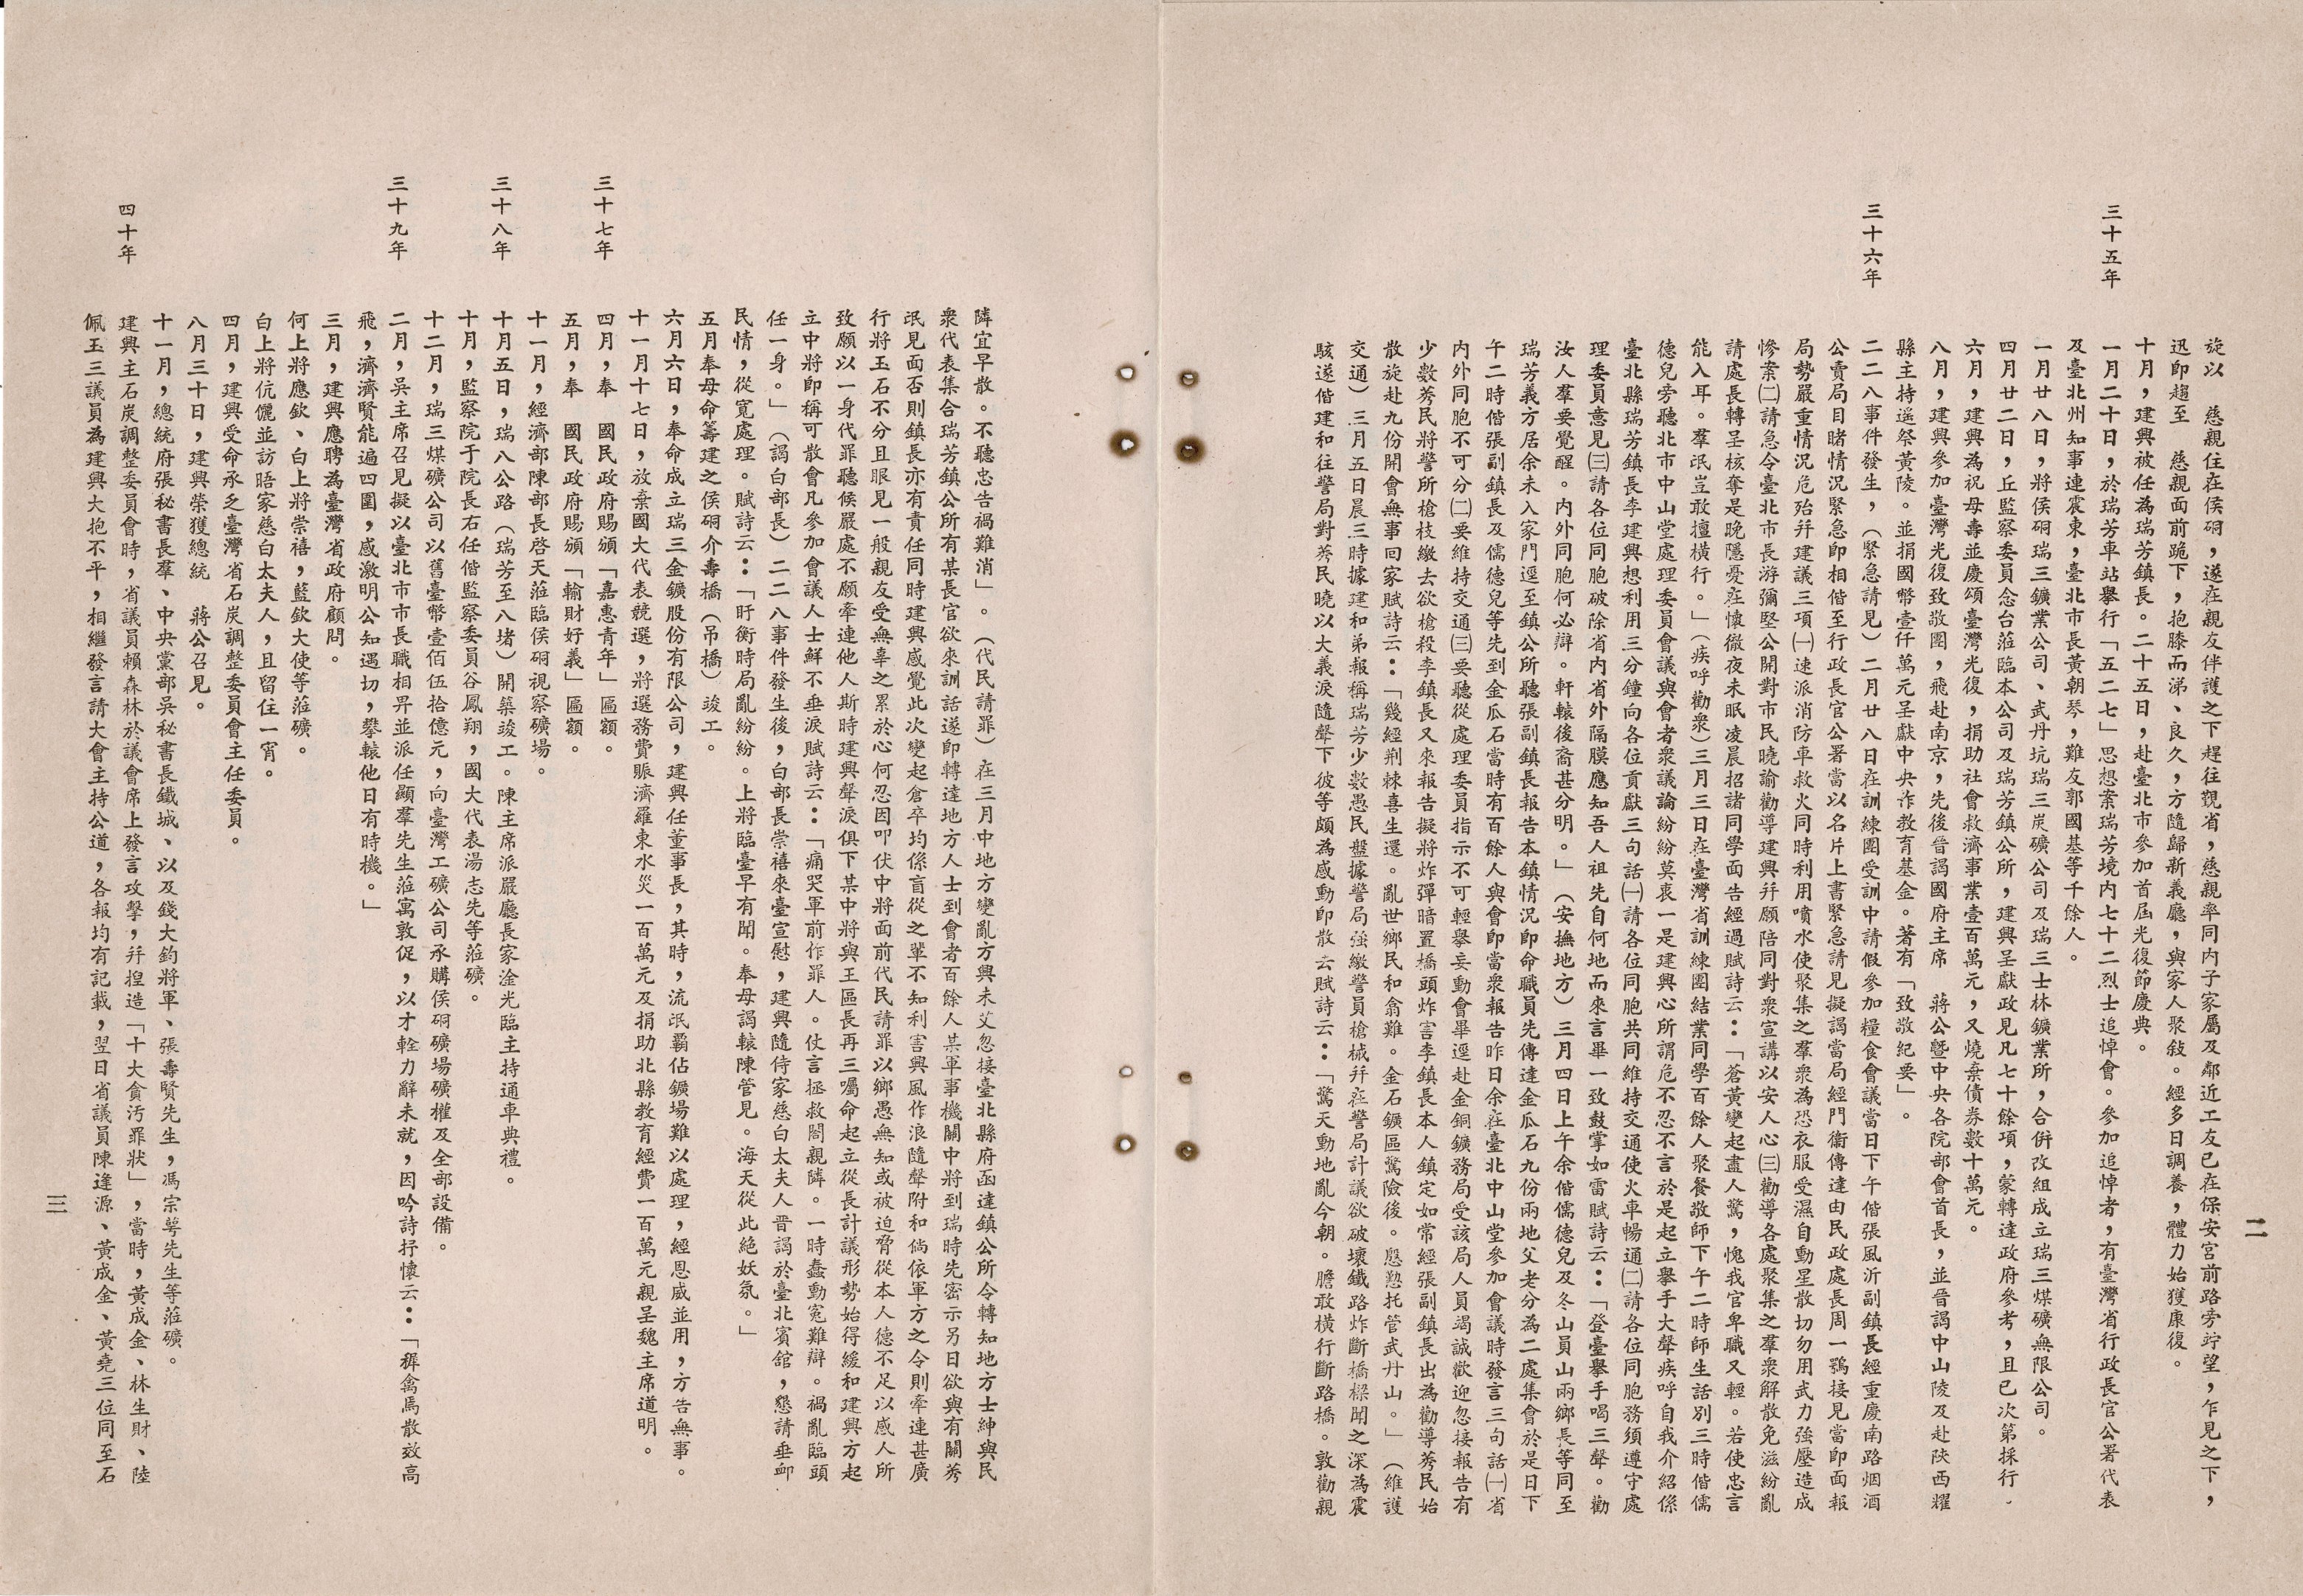 二
旋以　慈親住在侯硐，遂在親友伴護之下趕往覲省，慈親率同內子家屬及鄰近工友已在保安宮前路旁竚望，乍見之下，
迅即趨至　慈親面前跪下，抱膝而涕、良久，方隨歸新義廳，與家人聚敍。經多日調養，體力始獲康復。
十月，建興被任為瑞芳鎮長。二十五日，赴臺北市參加首屆光復節慶典。
三十五年
一月二十日，於瑞芳車站舉行「五二七」思想案瑞芳境內七十二烈士追悼會。參加追悼者，有臺灣省行政長官公署代表
及臺北州知事連震東，臺北市長黃朝琴，難友郭國基等千餘人。
一月廿八日，將侯硐瑞三鑛業公司、武丹坑瑞三炭礦公司及瑞三士林鑛業所，合併改組成立瑞三煤礦無限公司。
四月廿二日，丘監察委員念台蒞臨本公司及瑞芳鎮公所，建興呈獻政見凡七十餘項，蒙轉達政府參考，且已次第採行、
六月，建興為祝母壽並慶頌臺灣光復，捐助社會救濟事業壹百萬元，又燒棄債券數十萬元。
八月，建興參加臺灣光復致敬團，飛赴南京，先後晉謁國府主席　蔣公暨中央各院部會首長，並晉謁中山陵及赴陝西耀
縣主持遥祭黃陵。並捐國幣壹仟萬元呈獻中央作教育基金。著有「致敬紀要」。
三十六年
二二八事件發生，（緊急請見）二月廿八日在訓練團受訓中請假參加糧食會議當日下午偕張風沂副鎮長經重慶南路烟酒
公賣局目睹情況緊急即相偕至行政長官公署當以名片上書緊急請見擬謁當局經門衞傳達由民政處長周一鶚接見當即面報
局勢嚴重情況危殆幷建議三項㈠速派消防車救火同時利用噴水使聚集之羣衆為恐衣服受濕自動星散切勿用武力強壓造成
慘案㈡請急令臺北市長游彌堅公開對市民曉諭勸導建興幷願陪同對衆宣講以安人心㈢勸導各處聚集之羣衆解散免滋紛亂
請處長轉呈核奪是晚隱憂在懷徹夜未眠凌晨招諸同學面告經過賦詩云：「蒼黃變起盡人驚，愧我官卑職又輕。若使忠言
能入耳。羣氓豈敢擅橫行。」（疾呼勸衆）三月三日在臺灣省訓練團結業同學百餘人聚餐敬師下午二時師生話別三時偕儒
德兒旁聽北市中山堂處理委員會議與會者衆議論紛紛莫衷一是建興心所謂危不忍不言於是起立舉手大聲疾呼自我介紹係
臺北縣瑞芳鎮長李建興想利用三分鐘向各位貢獻三句話㈠請各位同胞共同維持交通使火車暢通㈡請各位同胞務須遵守處
理委員意見㈢請各位同胞破除省內省外隔膜應知吾人祖先自何地而來言畢一致鼓掌如雷賦詩云：「登臺舉手喝三聲。勸
汝人羣要覺醒。內外同胞何必辯。軒轅後裔甚分明。」（安撫地方）三月四日上午余偕儒德兒及冬山員山兩鄉長等同至
瑞芳義方居余未入家門逕至鎮公所聽張副鎮長報告本鎮情況即命職員先傳達金瓜石九份兩地父老分為二處集會於是日下
午二時偕張副鎮長及儒德兒等先到金瓜石當時有百餘人與會即當衆報告昨日余在臺北中山堂參加會議時發言三句話㈠省
內外同胞不可分㈡要維持交通㈢要聽從處理委員指示不可輕舉妄動會畢逕赴金銅鑛務局受該局人員竭誠歡迎忽接報告有
少數莠民將警所槍枝繳去欲槍殺李鎮長又來報告擬將炸彈暗置橋頭炸害李鎮長本人鎮定如常經張副鎮長出為勸導莠民始
散旋赴九份開會無事回家賦詩云：「幾經荆棘喜生還。亂世鄉民和翕難。金石鑛區驚險後。慇懃托管武丹山。」（維護
交通）三月五日晨三時據建和弟報稱瑞芳少數愚民盤據警局強繳警員槍械幷在警局計議欲破壞鐵路炸斷橋樑聞之深為震
駭遂偕建和往警局對莠民曉以大義淚隨聲下彼等頗為感動即散去賦詩云：「驚天動地亂今朝。膽敢橫行斷路橋。敦勸親
隣宜早散。不聽忠告禍難消」。（代民請罪）在三月中地方變亂方興未艾忽接臺北縣府函達鎮公所令轉知地方士紳與民
衆代表集合瑞芳鎮公所有某長官欲來訓話遂即轉達地方人士到會者百餘人某軍事機關中將到瑞時先密示另日欲與有關莠
氓見面否則鎮長亦有責任同時建興感覺此次變起倉卒均係盲從之輩不知利害興風作浪隨聲附和倘依軍方之令則牽連甚廣
行將玉石不分且眼見一般親友受無辜之累於心何忍因叩伏中將面前代民請罪以鄉愚無知或被迫脅從本人德不足以感人所
致願以一身代罪聽候嚴處不願牽連他人斯時建興聲淚俱下某中將與王區長再三囑命起立從長計議形勢始得緩和建興方起
立中將即稱可散會凡參加會議人士鮮不垂淚賦詩云：「痛哭軍前作罪人。仗言拯救閤親隣。一時蠢動冤難辯。禍亂臨頭
任一身。」（謁白部長）二二八事件發生後，白部長崇禧來臺宣慰，建興隨侍家慈白太夫人晉謁於臺北賓舘，懇請垂卹
民情，從寬處理。賦詩云：「盱衡時局亂紛紛。上將臨臺早有聞。奉母謁轅陳管見。海天從此絶妖氛。」
五月奉母命籌建之侯硐介壽橋（吊橋）竣工。
六月六日，奉命成立瑞三金鑛股份有限公司，建興任董事長，其時，流氓霸佔鑛場難以處理，經恩威並用，方告無事。
十一月十七日，放棄國大代表競選，將選務費賑濟羅東水災一百萬元及捐助北縣教育經費一百萬元親呈魏主席道明。
三十七年
四月，奉　國民政府賜頒「嘉惠青年」匾額。
五月，奉　國民政府賜頒「輸財好義」匾額。
十一月，經濟部陳部長啓天蒞臨侯硐視察礦場。
三十八年
十月五日，瑞八公路（瑞芳至八堵）開築竣工。陳主席派嚴廳長家淦光臨主持通車典禮。
十月，監察院于院長右任偕監察委員谷鳳翔，國大代表湯志先等蒞礦。
十二月，瑞三煤礦公司以舊臺幣壹佰伍拾億元，向臺灣工礦公司承購侯硐礦場礦權及全部設備。
三十九年
二月，吳主席召見擬以臺北市市長職相畀並派任顯羣先生蒞寓敦促，以才輇力辭未就，因吟詩抒懷云：「樨禽馬散效高
飛，濟濟賢能遍四圍，感激明公知遇切，攀轅他日有時機。」
三月，建興應聘為臺灣省政府顧問。
何上將應欽、白上將崇禧，藍欽大使等蒞礦。
白上將伉儷並訪晤家慈白太夫人，且留住一宵。
四月，建興受命承乏臺灣省石炭調整委員會主任委員。
八月三十日，建興榮獲總統　蔣公召見。
十一月，總統府張秘書長羣、中央黨部吳秘書長鐵城、以及錢大鈞將軍、張壽賢先生，馮宗蕚先生等蒞礦。
四十年
建興主石炭調整委員會時，省議員賴森林於議會席上發言攻擊，幷揑造「十大貪汚罪狀」，當時，黃成金、林生財、陸
佩玉三議員為建興大抱不平，相繼發言請大會主持公道，各報均有記載，翌日省議員陳逢源、黃成金、黃堯三位同至石
三